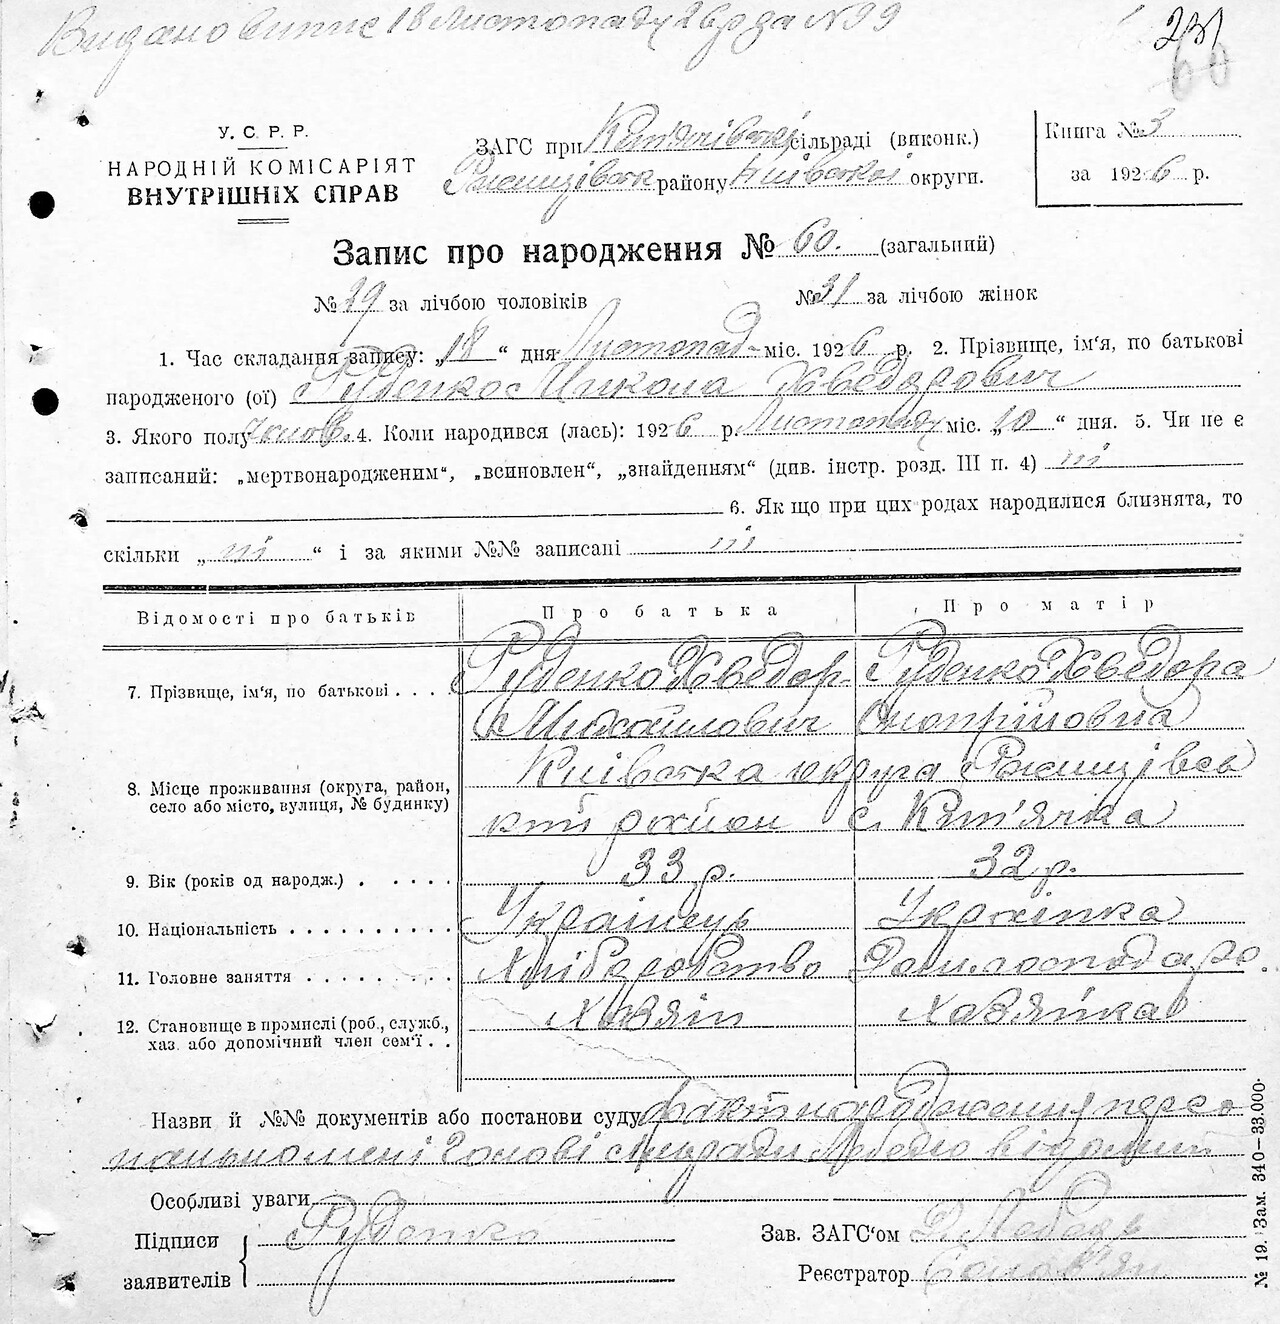 Видано випис 18 Листопаду 26 рода N 99
231
60
У. С. Р. Р.
НАРОДНІЙ КОМІСАРІЯТ
ВНУТРІШНІХ СПРАВ
ЗАГС при сільраді (виконк.)
Ржищівськ району Київської округи.
Книга № 3
за 1926 р.
Запис про народження № 60. (загальний)
№ 29 за лічбою чоловіків № 31 за лічбою жінок
1. Час складання запису: „18“ дня Листопад міс. 1926 р. 2. Прізвище, ім'я, по батькові
народженого (ої) Руденко Микола Хведорович
3. Якого полу чолов. 4. Коли народився (лась): 1926 р. Листопаду міс. „10“ дня. 5. Чи не є
записаний: „мертвонародженим“, „всиновлен“, „знайденням“ (див. інстр. розд. III п. 4) ні
6. Як що при цих родах народилися близнята, то
скільки „ні“ і за якими №№ записані ні
Відомості про батьків Про батька Про матір
7. Прізвище, ім'я, по батькові . . . . Руденко Хведор Руденко Хведора
Михайлович Оноприїовна
8. Місце проживання (округа, район, село або місто, вулиця, № будинку) Київська округа Ржищівсь
кий район с. Кип'ячка
9. Вік (років од народж.) . . . . . . 33 р. 32 р.
10. Національність . . . . . . . . . . Українець Українка
11. Головне заняття . . . . . . . . . Хліборобство Дом. господар.
12. Становище в промислі (роб., служб., хаз. або допомічний член сем'ї . . Хазяїн Хазяйка
Назви й №№ документів або постанови суду факт народження персо
нально мені Голові сільради Лебедю відомий
Особливі уваги
Підписи заявителів Руденко
Зав. ЗАГС'ом Д. Лебедь
Реєстратор
№ 19. Зам. 340—33.000.